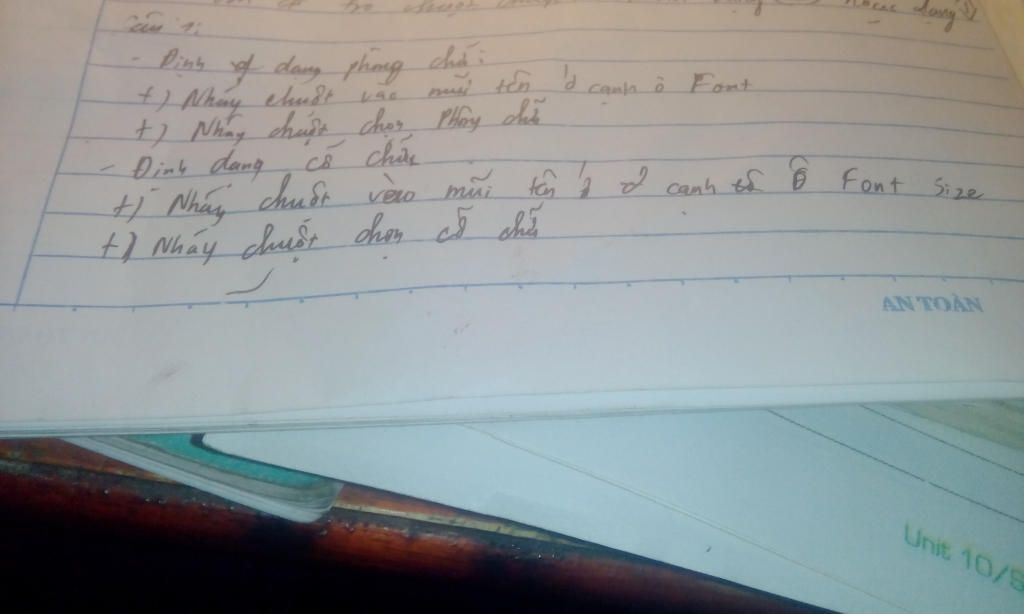 trỏ chuột
Câu 1:
- Định dạng phông chữ:
+) Nháy chuột vào mũi tên ở cạnh ô Font
+) Nháy chuột chọn Phông chữ
- Định dạng cỡ chữ
+) Nháy chuột vào mũi tên ở cạnh ô Font Size
+) Nháy chuột chọn cỡ chữ
AN TOÀN
Unit 10/